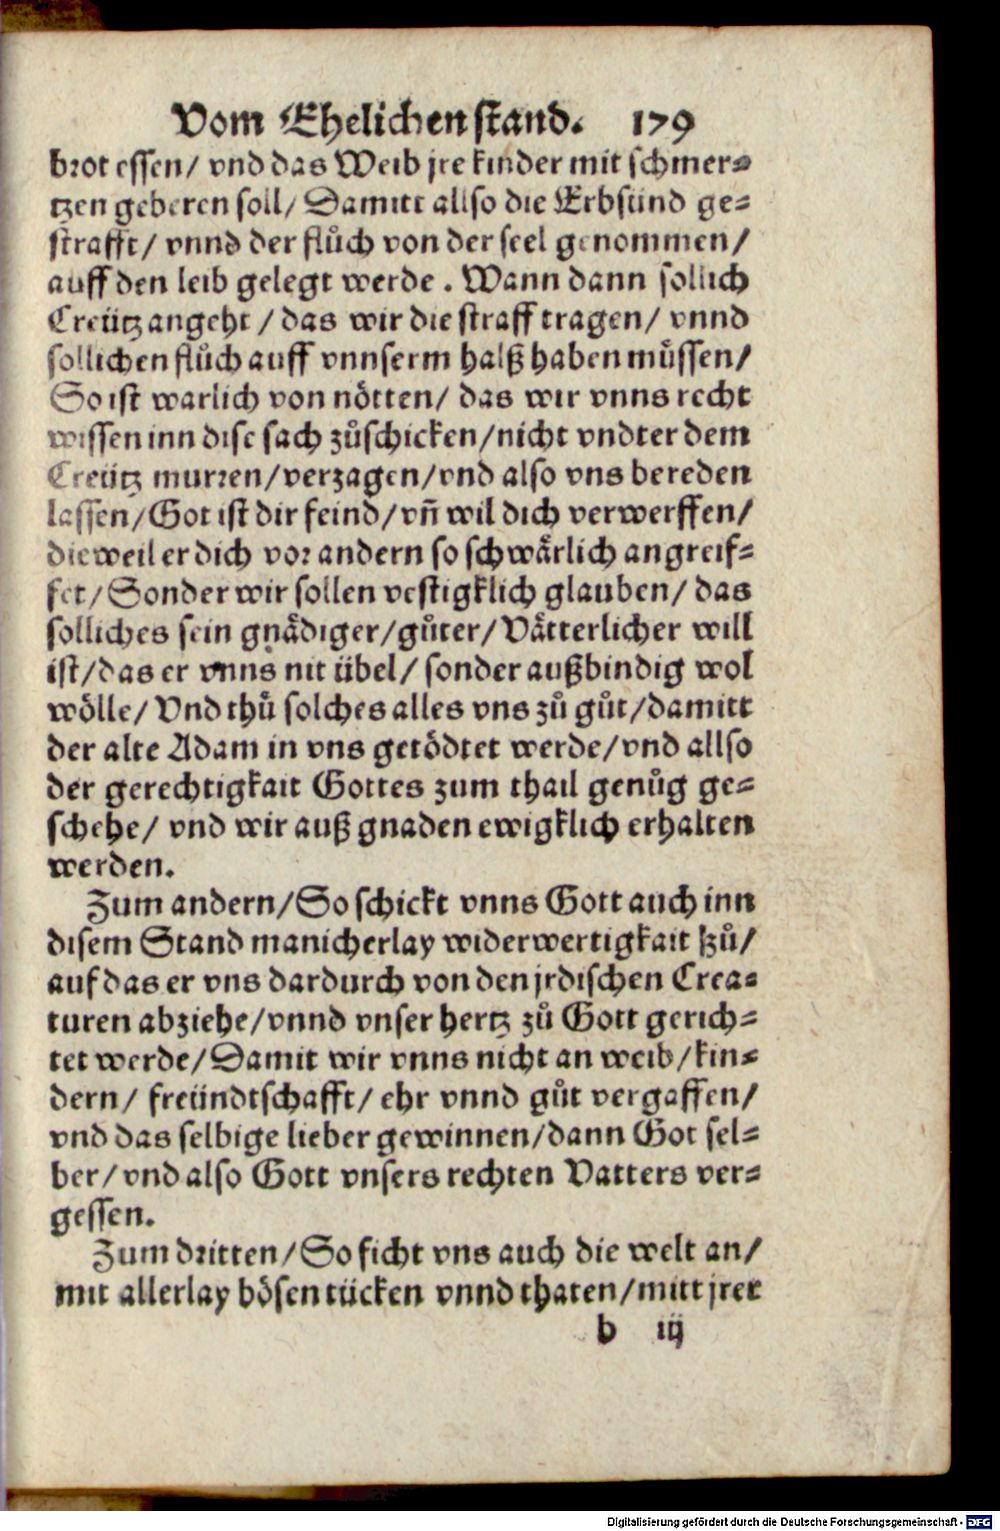 Vom Ehelichen stand. 179
brot essen/ vnd das Weib jre kinder mit schmer-
tzen geberen soll/ Damitt allso die Erbsünd ge-
strafft/ vnnd der flůch von der seel genommen/
auff den leib gelegt werde. Wann dann sollich
Creütz angeht/ das wir die straff tragen/ vnnd
sollichen flůch auff vnnserm halß haben müssen/
So ist warlich von nötten/ das wir vnns recht
wissen inn dise sach zůschicken/nicht vndter dem
Creütz murren/verzagen/vnd also vns bereden
lassen/Got ist dir feind/vñ wil dich verwerffen/
dieweil er dich vor andern so schwårlich angreif-
fet/Sonder wir sollen vestigklich glauben/ das
solliches sein gnådiger/gůter/Våtterlicher will
ist/das er vnns nit übel/ sonder außbindig wol
wölle/Vnd thů solches alles vns zů gůt/damitt
der alte Adam in vns getödtet werde/vnd allso
der gerechtigkait Gottes zum thail genůg ge-
schehe/ vnd wir auß gnaden ewigklich erhalten
werden.
Zum andern/So schickt vnns Gott auch inn
disem Stand manicherlay widerwertigkait hzů/
auf das er vns dardurch von den jrdischen Crea-
turen abziehe/vnnd vnser hertz zů Gott gerich-
tet werde/Damit wir vnns nicht an weib/kin-
dern/ freündtschafft/ ehr vnnd gůt vergaffen/
vnd das selbige lieber gewinnen/dann Got sel-
ber/vnd also Gott vnsers rechten Vatters ver-
gessen.
Zum dritten/So ficht vns auch die welt an/
mit allerlay bösen tücken vnnd thaten/mitt jrer
b iij
Digitalisierung gefördert durch die Deutsche Forschungsgemeinschaft - DFG